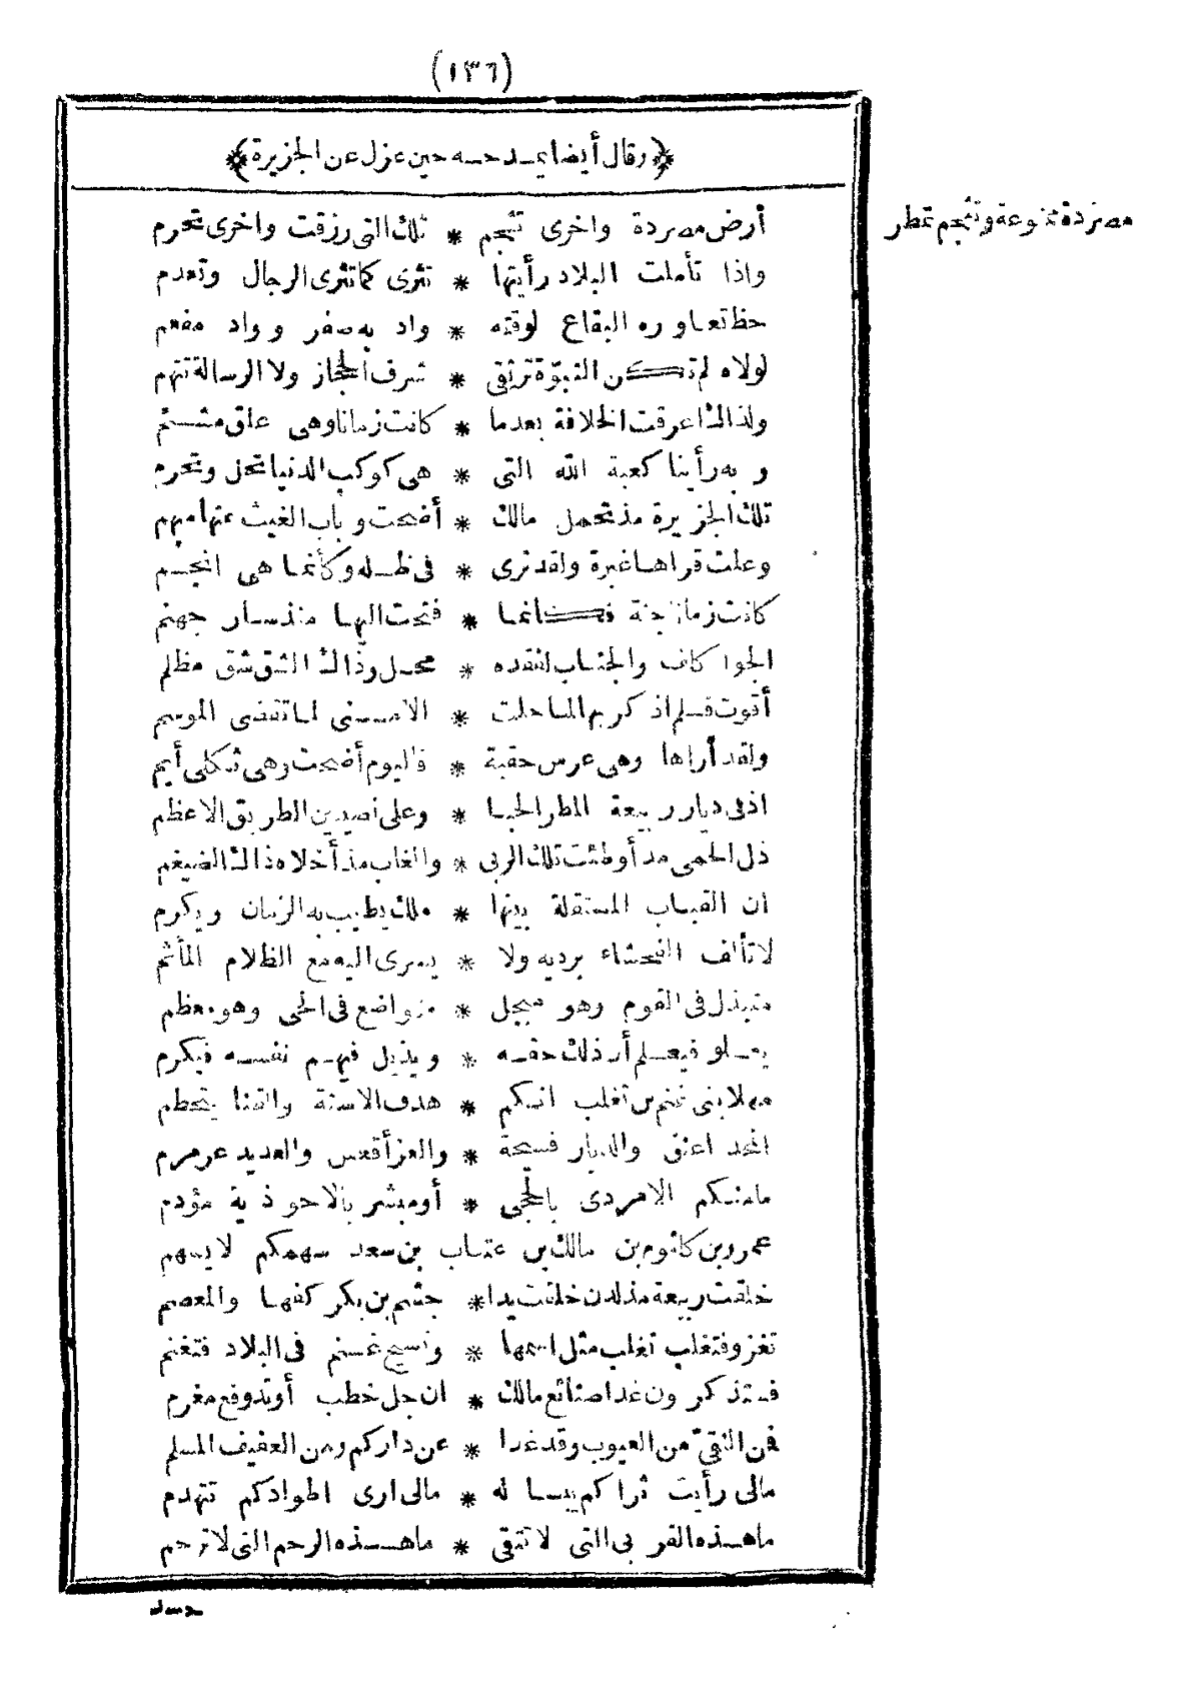 (١٣٦)
﴿وقال أيضا يمدحه حين عزل عن الجزيرة﴾
أرض مصردة واخرى تثجم * تلك التى رزقت واخرى تحرم
مصردة ممنوعة وتثجم تمطر
واذا تأملت البلاد رأيتها * تثرى كما تثرى الرجال وتعدم
حظ تعاوره البقاع لوقته * واد به صفر وواد مفعم
لولاه لم تكن النبوّة ترتقى * شرف الحجاز ولا الرسالة تتهم
ولذاك اعرقت الخلافة بعدما * كانت زمانا وهى علق مشئم
وبه رأينا كعبة الله التى * هى كوكب الدنيا تحل وتحرم
تلك الجزيرة مذ تحمل مالك * أضحت وباب الغيث عنها مبهم
وعلت قراها غبرة ولقد ترى * فى ظله وكأنما هى انجم
كانت زمانا جنة فكأنما * فتحت اليها منذ سار جهنم
الجو اكلف والجناب لفقده * محل وذاك الشق شق مظلم
أقوت فلم اذكر بها لما خلت * الا منى لما تقضى الموسم
ولقد أراها وهى عرس حقبة * فاليوم أضحت وهى ثكلى أيم
اذ فى ديار ربيعة المطر الحيا * وعلى نصيبين الطريق الاعظم
ذل الحمى مذ أوطئت تلك الربى * والغاب مذ أخلاه ذاك الضيغم
ان القباب المستقلة بينها * ملك يطيب به الزمان ويكرم
لا تألف الفحشاء برديه ولا * يسرى اليه مع الظلام المأثم
متبذل فى القوم وهو مبجل * متواضع فى الحى وهو معظم
يعلو فيعلم أن ذلك حقه * ويذيل فيهم نفسه فيكرم
مهلا بنى غنم بن تغلب انكم * هدف الاسنة والقنا يتحطم
المجد اعنق والديار فسيحة * والعز أقعس والعديد عرمرم
مامنكم الا مردى بالحجى * أو مبشر بالاحوذية مؤدم
عمرو بن كلثوم بن مالك بن عتاب بن سعد سهمكم لا يسهم
خلقت ربيعة مذ لدن خلقت يدا * جشم بن بكر كفها والمعصم
تغزو فتغلب تغلب مثل اسمها * وتسيح غنم فى البلاد فتغنم
فستذكرون غدا صنائع مالك * ان جل خطب أو تدوفع مغرم
فمن النقىّ من العيوب وقد غدا * عن داركم ومن العفيف المسلم
مالى رأيت ثراكم يبسا له * مالى ارى اطوادكم تتهدم
ما هذه القربى التى لا تتقى * ما هذه الرحم التى لا ترحم
حسد